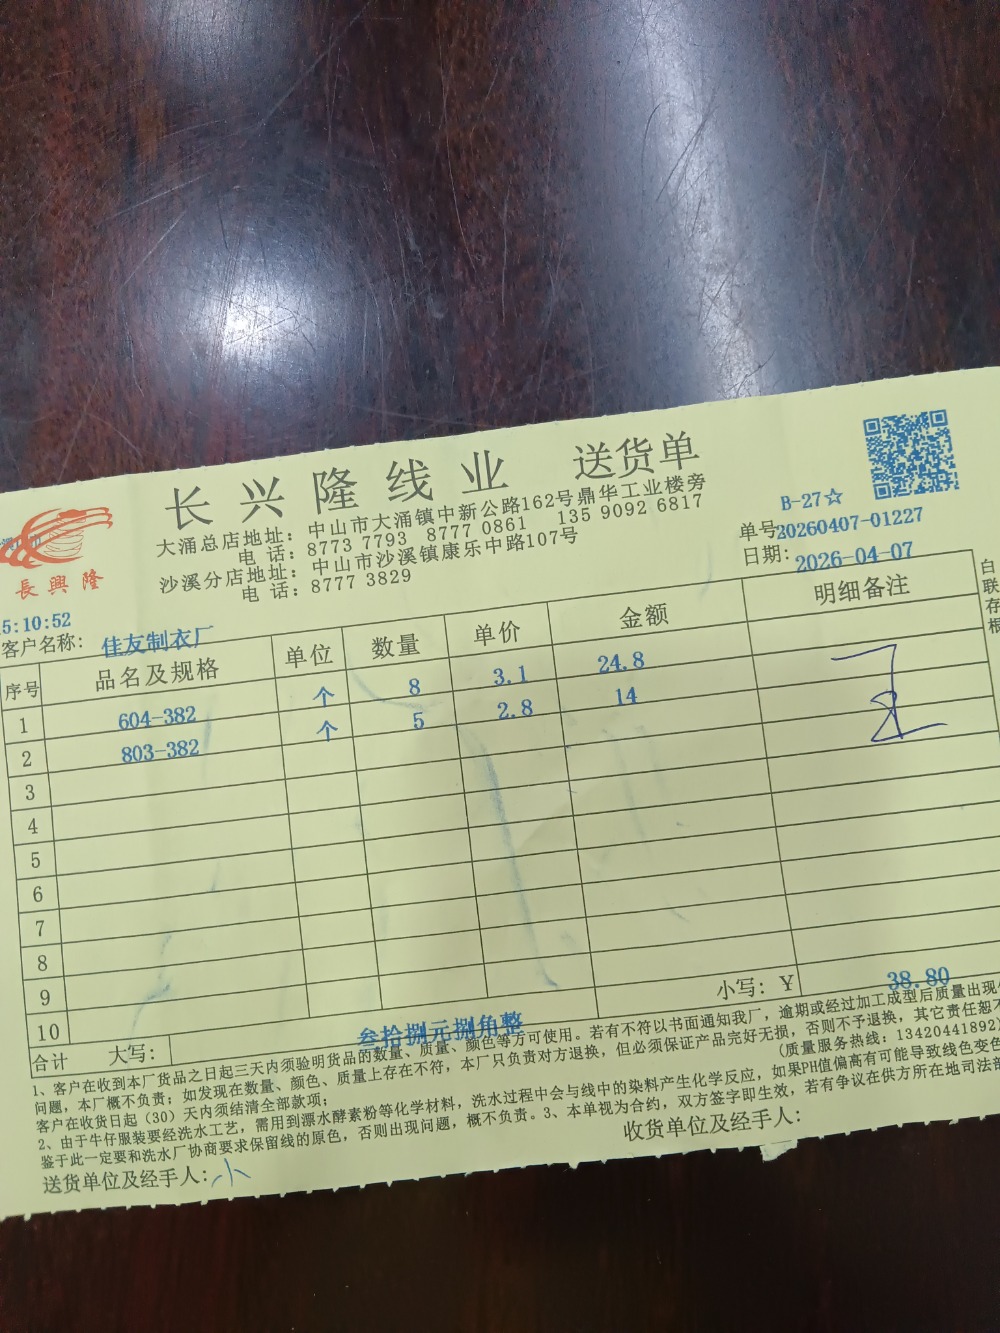 长兴隆线业 送货单
大涌总店地址：中山市大涌镇中新公路162号鼎华工业楼旁
电话：8773 7793 8777 0861 135 9092 6817
沙溪分店地址：中山市沙溪镇康乐中路107号
电话：8777 3829
長興隆
B-27☆
单号20260407-01227
日期：2026-04-07
5:10:52
客户名称：佳友制衣厂
序号 品名及规格 单位 数量 单价 金额 明细备注
1 604-382 个 8 3.1 24.8
2 803-382 个 5 2.8 14
3
4
5
6
7
8
9
10
小写：¥ 38.80
合计 大写：叁拾捌元捌角整
白联存根
1、客户在收到本厂货品之日起三天内须验明货品的数量、质量、颜色等方可使用。若有不符以书面通知我厂，逾期或经过加工成型后质量出现
问题，本厂概不负责；如发现在数量、颜色、质量上存在不符，本厂只负责对方退换，但必须保证产品完好无损，否则不予退换，其它责任恕不
客户在收货日起（30）天内须结清全部款项；
(质量服务热线：13420441892)
2、由于牛仔服装要经洗水工艺，需用到漂水酵素粉等化学材料，洗水过程中会与线中的染料产生化学反应，如果PH值偏高有可能导致线色变色
鉴于此一定要和洗水厂协商要求保留线的原色，否则出现问题，概不负责。3、本单视为合约，双方签字即生效，若有争议在供方所在地司法部
送货单位及经手人：小
收货单位及经手人：